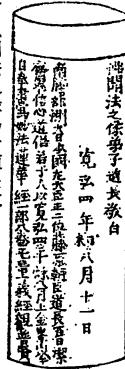 聞法之儔弟子道長敬白
寛弘四年丁未八月十一日
南瞻部洲大日本國左大臣正二位藤原朝臣道長百日潔
齋率信心道俗若干人以寛弘四年秋八月上金峯山以手
自奉書寫妙法蓮華經一部八卷无量義經觀普賢